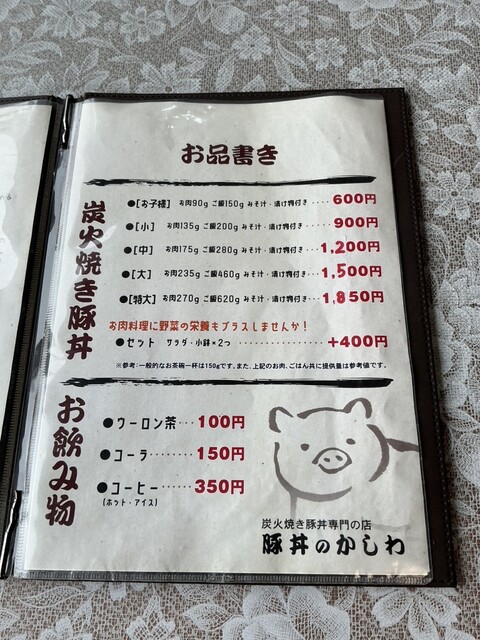 お品書き
炭火焼き豚丼
●[お子様] お肉90g ご飯150g みそ汁・漬け物付き････600円
●[小] お肉135g ご飯200g みそ汁・漬け物付き････900円
●[中] お肉175g ご飯280g みそ汁・漬け物付き･･･1,200円
●[大] お肉235g ご飯460g みそ汁・漬け物付き･･･1,500円
●[特大] お肉270g ご飯620g みそ汁・漬け物付き･･･1,850円
お肉料理に野菜の栄養もプラスしませんか！
●セット サラダ・小鉢×2つ ･････････････････+400円
※参考:一般的なお茶碗一杯は150gです。また、上記のお肉、ごはん共に提供量は参考値です。
お飲み物
●ウーロン茶･･･100円
●コーラ････････150円
●コーヒー･･････350円
(ホット・アイス)
炭火焼き豚丼専門の店
豚丼のかしわ